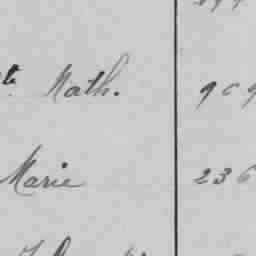 t. Nath. 909
Marie 236